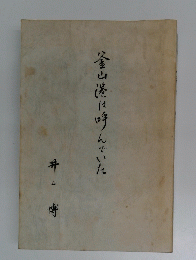 釜山港は呼んでいた
井上 博